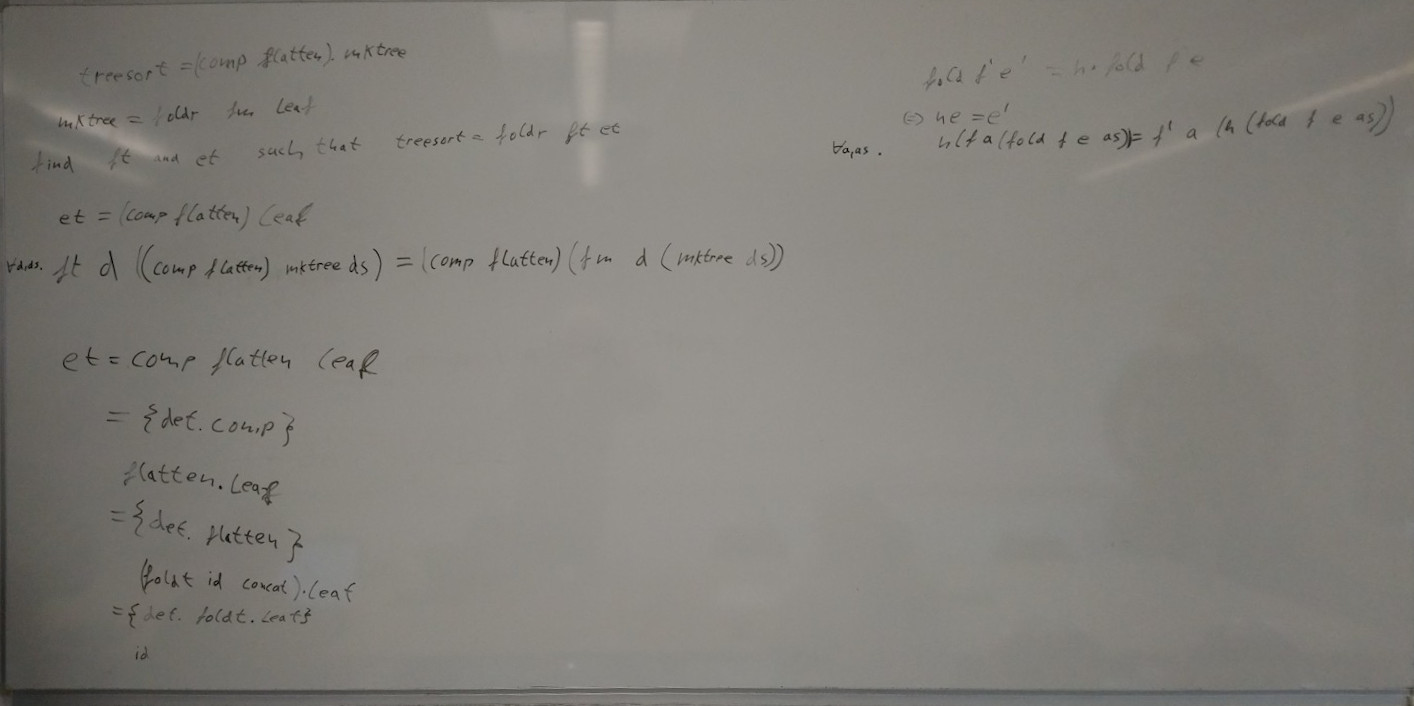 treesort = (comp flatten). mktree
mktree = foldr fm Leaf
find ft and et such that treesort = foldr ft et
et = (comp flatten) Leaf
∀d,ds. ft d ((comp flatten) mktree ds) = (comp flatten) (fm d (mktree ds))
et = comp flatten Leaf
= {def. comp}
flatten.Leaf
= {def. flatten}
(foldt id concat).Leaf
= {def. foldt.Leaf}
id
fold f' e' = h. fold f e
(=) he = e'
∀a,as. h(f a (fold f e as)) = f' a (h (fold f e as))